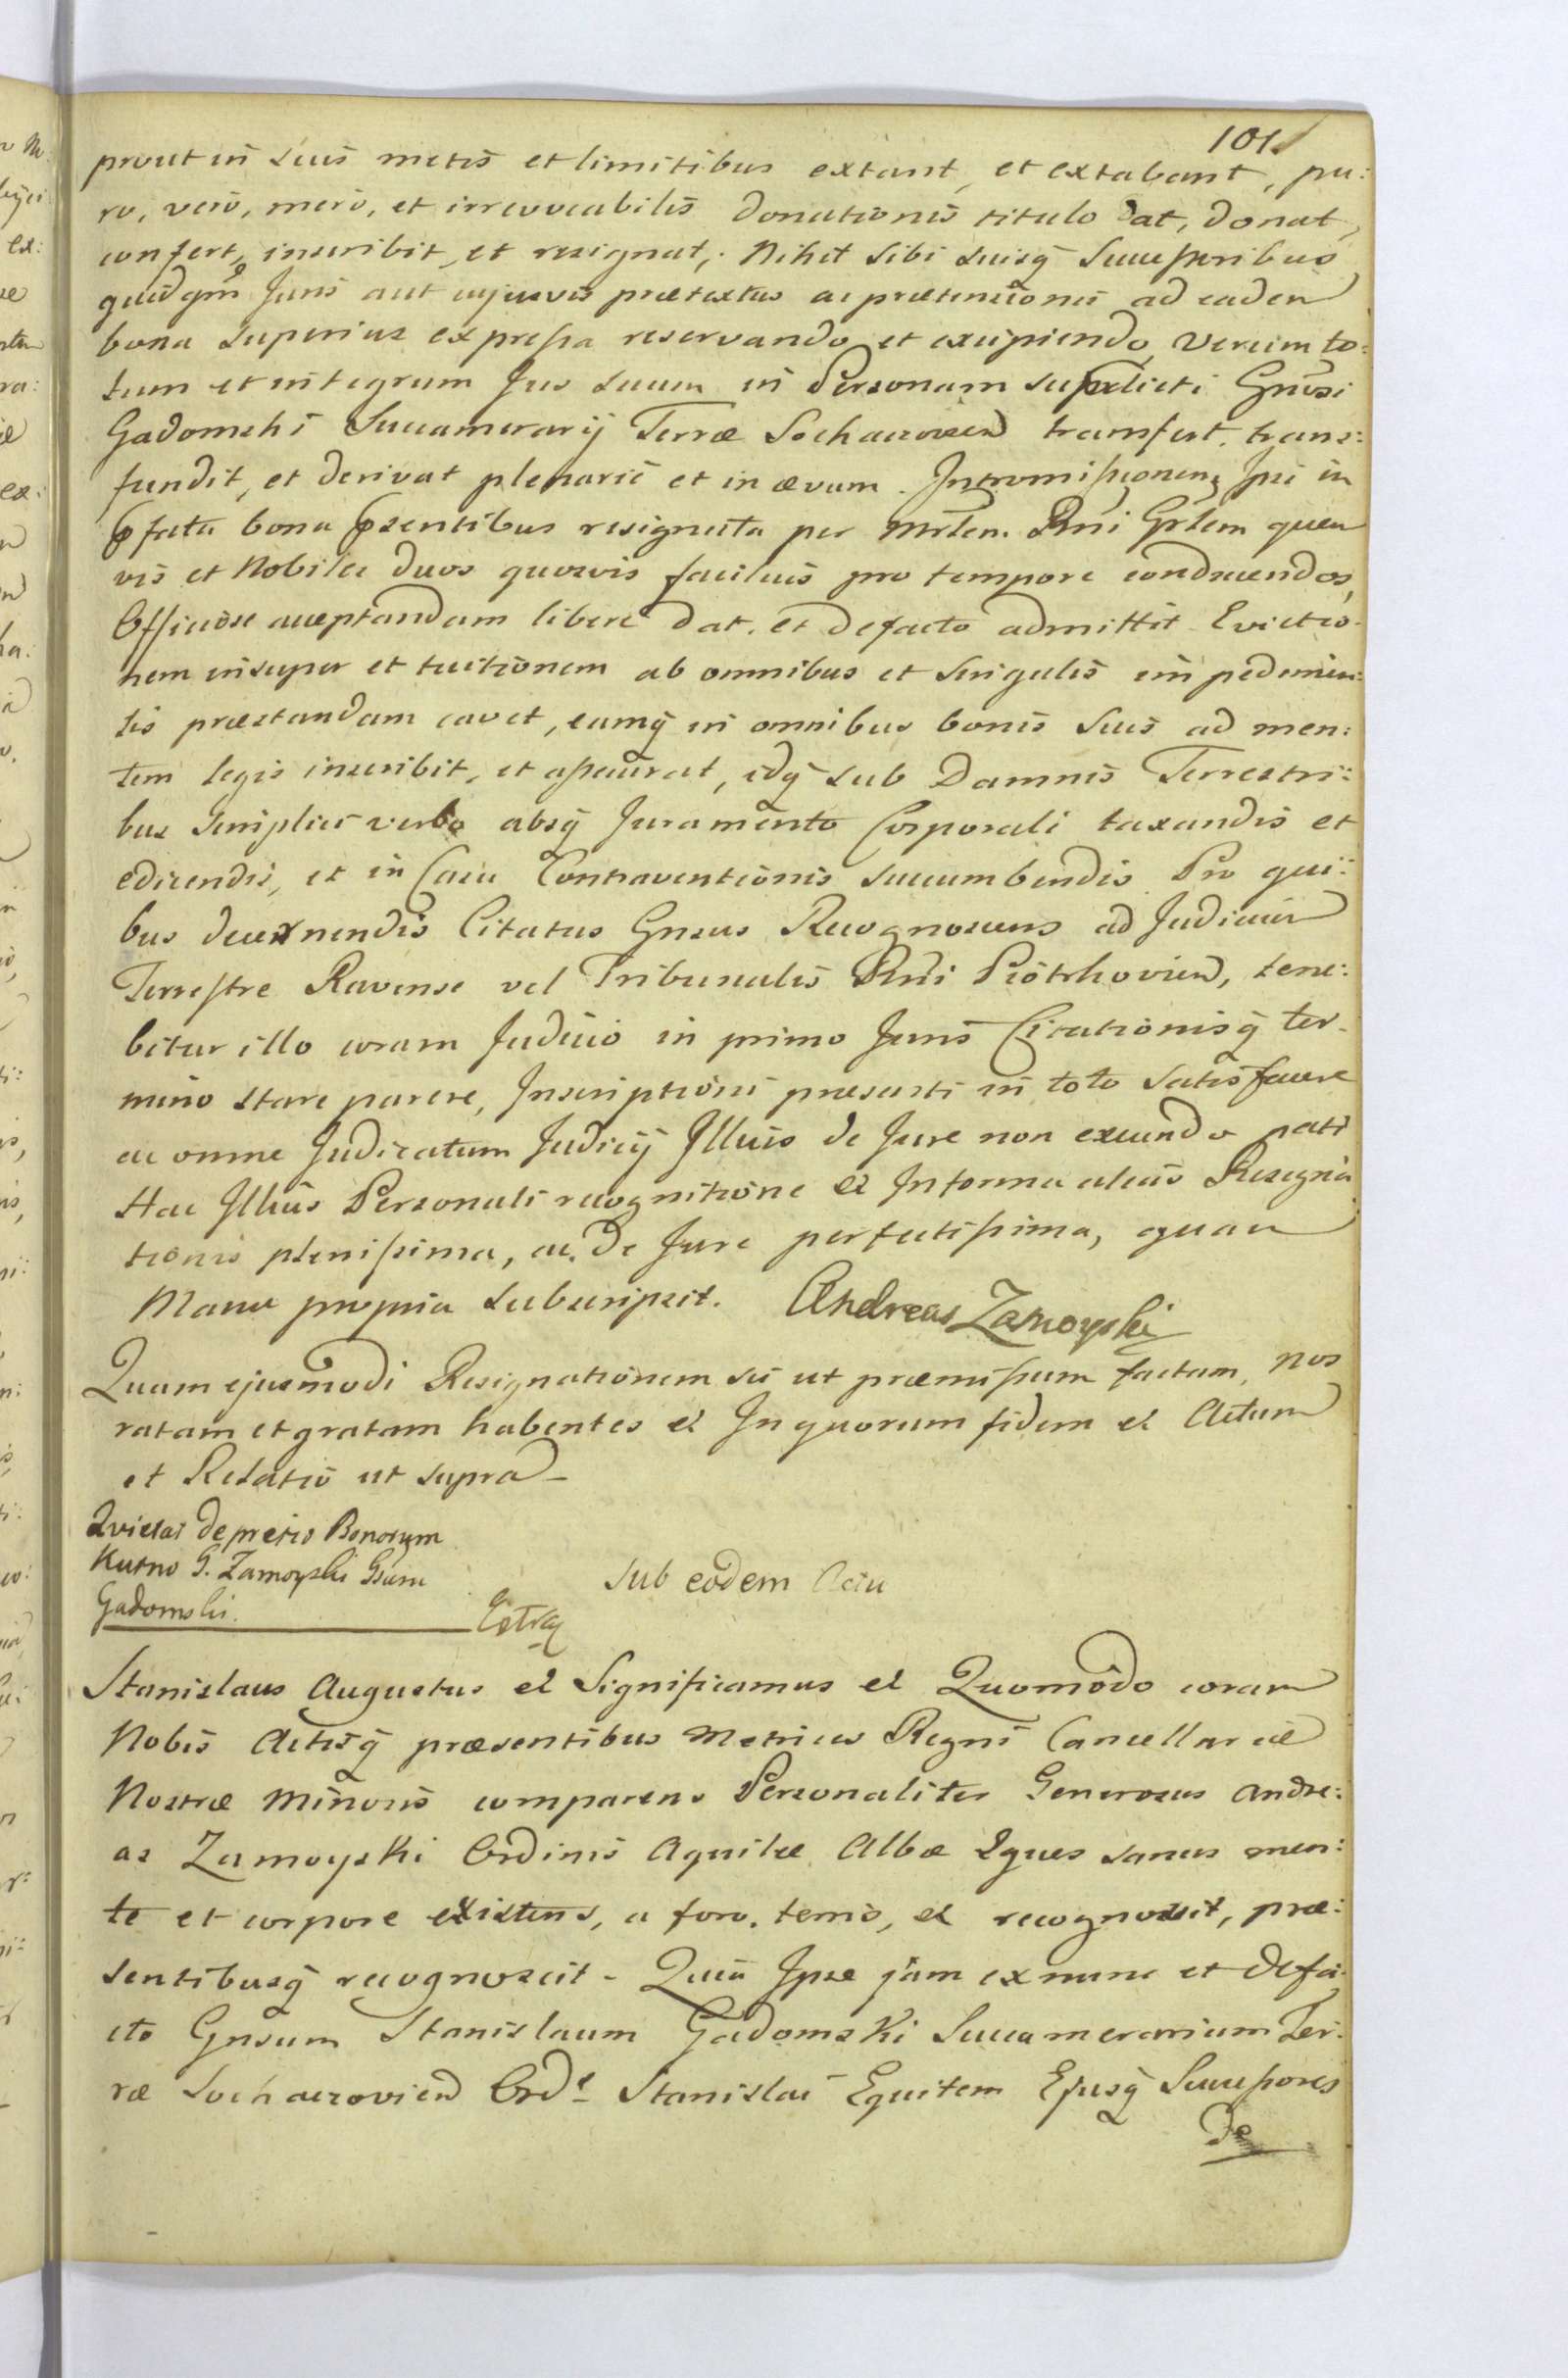 101.
prout in suis metis et limitibus extant, et extabant, pu:
ro, vero, mero, et irrevocabilis donationis titulo dat, donat,
confert, inscribit, et resignat, Nihil sibi suisq̃ Successoribus
quidqm̃ Juris aut cujusvis prætextus ac prætensionis ad eadem
bona superius expressa reservando et excipiendo, Verum to:
tum et integrum Jus suum in Personam Gñosi
Gadomski Succamerarij Terræ Sochaczovien transfert, trans:
fundit, et derivat plenarie et in ævum. Intromissionem Ipsi in
bona resignata per Rñi quem
vis et Nobiles duos quosvis facilius pro tempore conducendos,
Officiose acceptandam libere dat, et defacto admittit Evictio
nem insuper et tuitionem ab omnibus et singulis impedimen:
tis præstandam cavet, eamq̃ in omnibus bonis suis ad men:
tem legis inscribit, et assecurat, idq̃ sub Damnis Terrestri:
bus simplici verbo absq̃ Juramento Corporali taxandis et
edicendis, et in Casu Contraventionis succumbendis Pro qui:
bus decernendis Citatus Gnsus Recognoscens ad Judicium
Terrestre Ravense vel Tribunalis Rñi Piotrkovien, tene:
bitur illo coram Judicio in primo Juris Citationisq̃ ter
mino stare parere, Inscriptioni præsenti in toto satisfacere
ac omne Judicatum Judicij Illius de Jure non exeundo pati
Hac Illius Personali recognitione et Informa alias Resigna
tionis plenissima, ac de Jure perfectissima, quam
Manu propria subscripsit. Andreas Zamoyski
Quam ejusmodi Resignationem sic ut præmissum factam, nos
ratam et gratam habentes et In quorum fidem et Actum
et Relatio ut supra
Quietat de pretio Bonorum
Kutno G. Zamoyski Gsum
Gadomski.
Sub eodem Actu
Stanislaus Augustus et Significamus et Quomodo coram
Nobis Actisq̃ præsentibus Metrices Regni Cancellariæ
Nostræ Minoris comparens Personaliter Generosus Andre:
as Zamoyski Ordinis Aquilæ Albæ Eques sanus men:
te et corpore existens, a foro, et recognovit, præ:
sentibusq̃ recognoscit - Quia Ipse jam exnunc et defa
cto Gnsum Stanislaum Gadomski Succamerarium Ter:
ræ Sochaczovien Ord: Stanislai Equitem Ejusq̃ Successores
de